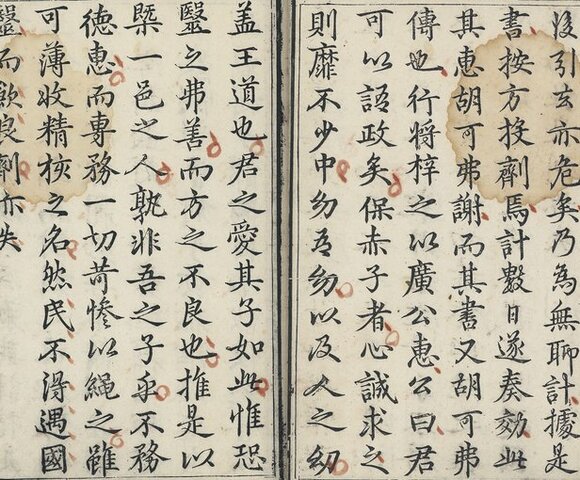 引去亦危矣乃為無聊計據是
書按方投劑焉計數日遂奏効此
其惠胡可弗謝而其書又胡可弗
傳也行将梓之以廣公惠公曰君
可以語政矣保赤子者心誠求之
則靡不少中幼吾幼以及人之幼
盖王道也君之愛其子如此惟恐
毉之弗善而方之不良也推是以
槩一邑之人孰非吾之子乎不務
德惠而專務一切苛慘以繩之雖
可薄收精核之名然民不得遇國
毉而飲良劑亦失